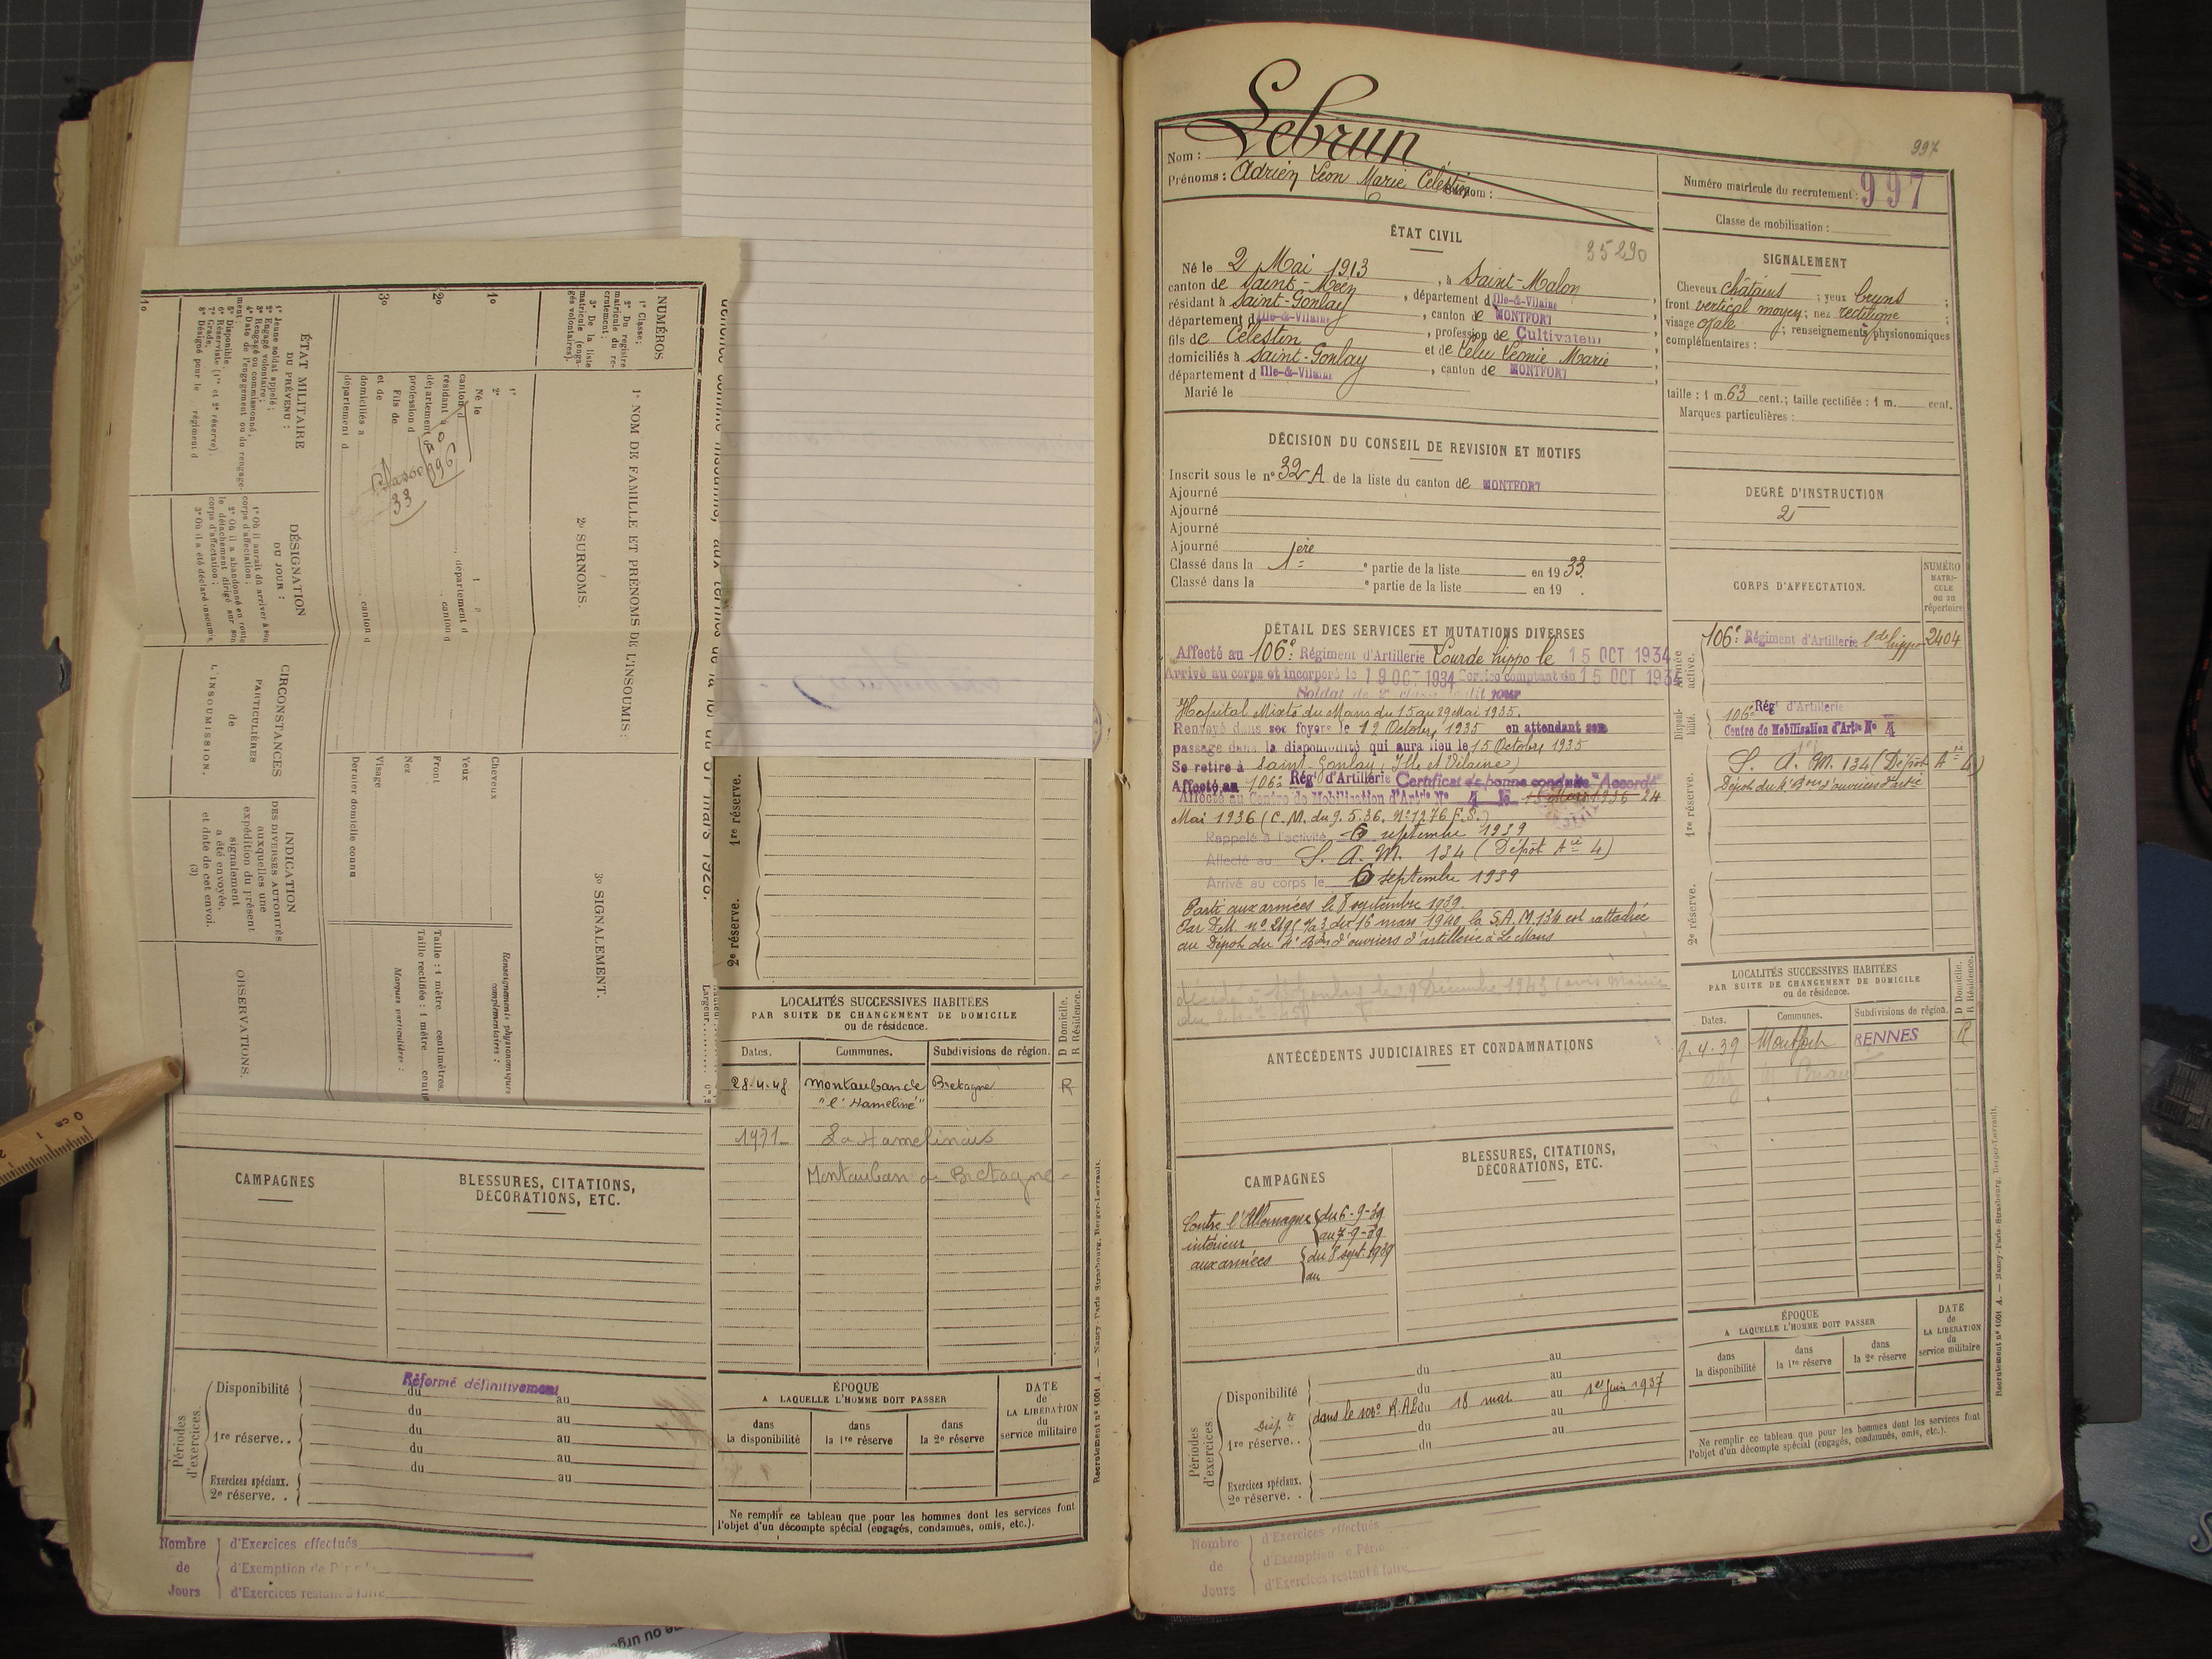 NUMÉROS
1° Classe;
2° Du registre matricule du recrutement;
3° De la liste matricule (engagés volontaires).
1° NOM DE FAMILLE ET PRENOMS DE L'INSOUMIS:
2° SURNOMS.
3° SIGNALEMENT.
1°
2°
3°
1°
2°
Né le
canton d
, département d
résidant à
département d
, canton d
profession d
Fils de
et de
domiciliés à
, canton d
département d
Classe
33
996
Cheveux
Yeux
Front
Nez
Visage
Dernier domicile connu
Renseignements physionomiques complémentaires:
Taille: 1 mètre centimètres.
Taille rectifiée: 1 mètre
Marques particulières:
ÉTAT MILITAIRE
DU PRÉVENU:
1° Jeune soldat appelé;
2° Engagé volontaire;
3° Rengagé ou commissionné,
4° Date de l'engagement ou du rengagement;
5° Disponible,
6° Réserviste (1re et 2e réserve).
7° Grade,
8° Désigné pour le régiment d
DÉSIGNATION
DU JOUR:
1° Où il aurait dû arriver à son corps d'affectation;
2° Où il a abandonné en route le détachement dirigé sur son corps d'affectation;
3° Où il a été déclaré insoumis.
CIRCONSTANCES
PARTICULIÈRES
de
L'INSOUMISSION.
INDICATION
DES DIVERSES AUTORITÉS
auxquelles une
expédition du présent
signalement
a été envoyée,
et date de cet envoi.
(3)
OBSERVATIONS.
1°
1re réserve.
2e réserve.
LOCALITÉS SUCCESSIVES HABITÉES
PAR SUITE DE CHANGEMENT DE DOMICILE
ou de résidence.
D Domicile.
R Résidence.
Dates. Communes. Subdivisions de région.
28-4-48 Montauban de Bretagne R
"l'Hameliné"
1971 La Hamelinais
Montauban de Bretagne
CAMPAGNES
BLESSURES, CITATIONS,
DÉCORATIONS, ETC.
Périodes d'exercices.
Réformé définitivement
Disponibilité du au
du au
1re réserve.. du au
du au
du au
Exercices spéciaux.
2e réserve. .
ÉPOQUE
A LAQUELLE L'HOMME DOIT PASSER
dans la disponibilité
dans la 1re réserve
dans la 2e réserve
DATE de LA LIBÉRATION du service militaire
Ne remplir ce tableau que pour les hommes dont les services font
l'objet d'un décompte spécial (engagés, condamnés, omis, etc.).
Nombre de Jours
d'Exercices effectués
d'Exemption de
d'Exercices restant à faire
Recrutement n° 1001 A. — Nancy-Paris-Strasbourg, Berger-Levrault.
997
Nom: Lebrun
Prénoms: Adrien Léon Marie Célestin Surnom:
Numéro matricule du recrutement: 997
Classe de mobilisation:
ÉTAT CIVIL
35290
Né le 2 Mai 1913, à Saint-Malon
canton de Saint-Méen, département d'Ille-&-Vilaine
résidant à Saint-Gonlay, canton de MONTFORT
département d'Ille-&-Vilaine, profession de Cultivateur
fils de Célestin
et de Lelu Léonie Marie
domiciliés à Saint-Gonlay
département d'Ille-&-Vilaine, canton de MONTFORT
Marié le
SIGNALEMENT
Cheveux châtains; yeux bruns;
front vertical moyen; nez rectiligne;
visage ovale; renseignements physionomiques
complémentaires:
taille: 1 m. 63 cent.; taille rectifiée: 1 m. cent.
Marques particulières:
DÉCISION DU CONSEIL DE REVISION ET MOTIFS
Inscrit sous le n° 32 A de la liste du canton de MONTFORT
Ajourné
Ajourné
Ajourné
Ajourné
Classé dans la 1ère partie de la liste en 1933.
Classé dans la e partie de la liste en 19 .
DEGRÉ D'INSTRUCTION
2
CORPS D'AFFECTATION.
NUMÉRO MATRICULE ou au répertoire
Armée active.
106e Régiment d'Artillerie Lde hippo 2404
Disponibilité.
106e Régt d'Artillerie
Centre de Mobilisation d'Artie N° 4
1re réserve.
S. A. M. 134 (Dépôt Aie 4)
Dépôt du 4e Bon d'ouvriers d'artie
2e réserve.
DÉTAIL DES SERVICES ET MUTATIONS DIVERSES
Affecté au 106e Régiment d'Artillerie Lourde hippo le 15 OCT 1934
Arrivé au corps et incorporé le 19 OCT 1934 Service comptant du 15 OCT 1934
Soldat de 2e classe ledit jour
Hopital Mixte du Mans du 15 au 29 Mai 1935.
Renvoyé dans ses foyers le 12 Octobre 1935 en attendant son
passage dans la disponibilité qui aura lieu le 15 Octobre 1935
Se retire à Saint-Gonlay (Ille et Vilaine)
Affecté au 106e Régt d'Artillerie Certificat de bonne conduite "Accordé"
Affecté au Centre de Mobilisation d'Artie N° 4 le 15 Mars 1936 24
Mai 1936 (C.M. du 9.5.36. N° 1276 F.S.)
Rappelé à l'activité 6 septembre 1939
Affecté au S. A. M. 134 (Dépôt Aie 4)
Arrivé au corps le 6 septembre 1939
Parti aux armées le 8 septembre 1939.
Par D.M. n° 2195 7/a3 du 16 mars 1940 la S.A.M. 134 est rattachée
au Dépôt du 4e Bon d'ouvriers d'artillerie à Le Mans
décédé à St Gonlay le 29 Décembre 1943 (avis Mairie
ANTÉCÉDENTS JUDICIAIRES ET CONDAMNATIONS
LOCALITÉS SUCCESSIVES HABITÉES
PAR SUITE DE CHANGEMENT DE DOMICILE
ou de résidence.
D Domicile.
R Résidence.
Dates. Communes. Subdivisions de région.
9.4.39 Montfort RENNES R
CAMPAGNES
BLESSURES, CITATIONS,
DÉCORATIONS, ETC.
Contre l'Allemagne { du 6-9-39
intérieur { au 7-9-39
aux armées { du 8 sept. 1939
au
ÉPOQUE
A LAQUELLE L'HOMME DOIT PASSER
dans la disponibilité
dans la 1re réserve
dans la 2e réserve
DATE de LA LIBÉRATION du service militaire
Périodes d'exercices.
du au
Disponibilité du au
Dispté dans le 106e R.A.L. du 18 mai au 1er Juin 1937
1re réserve. . du au
du
Exercices spéciaux.
2e réserve. .
Ne remplir ce tableau que pour les hommes dont les services font
l'objet d'un décompte spécial (engagés, condamnés, omis, etc.).
Nombre de Jours
d'Exercices effectués
d'Exemption de
d'Exercices restant à faire
Recrutement n° 1001 A. — Nancy-Paris-Strasbourg, Berger-Levrault.